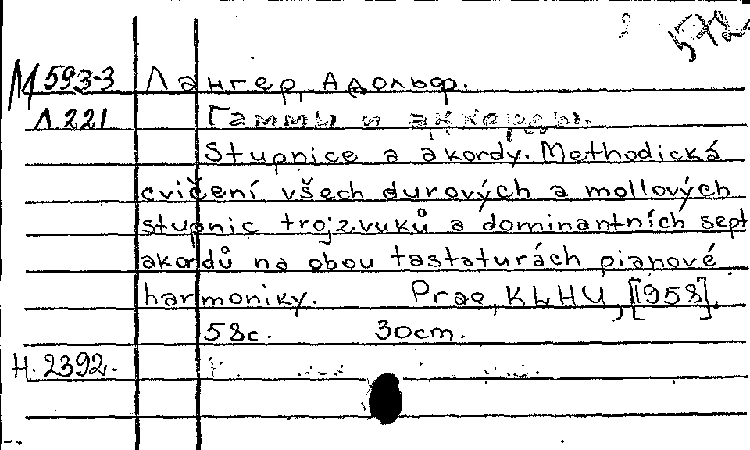 572
М 593-3 Лангер, Адольф.
Л.221 Гаммы и аккорды.
Stupnice a akordy. Methodická
cvičení všech durových a mollových
stupnic trojzvuků a dominantních sept
akordů na obou tastaturách pianové
harmoniky. Prae, KLHU, [1958].
58c. 30cm.
Н. 2392.